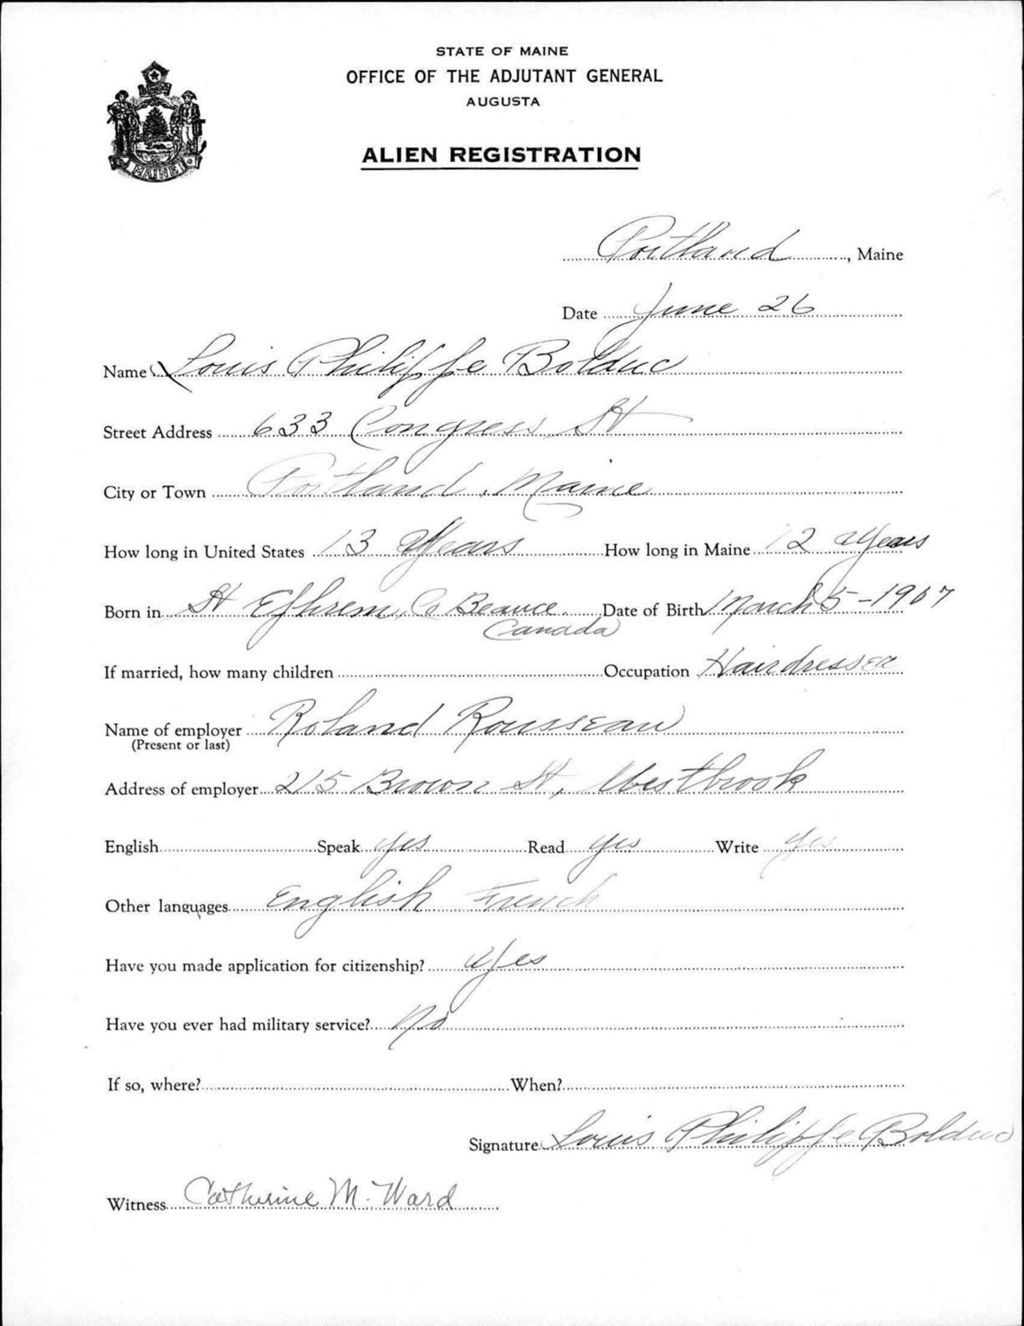 STATE OF MAINE
OFFICE OF THE ADJUTANT GENERAL
AUGUSTA
ALIEN REGISTRATION
MAINE
Portland, Maine
Date June 26
Name Louis Philippe Bolduc
Street Address 633 Congress St
City or Town Portland, Maine
How long in United States 13 Years How long in Maine 12 Years
Born in St Ephrem, Co Beauce Canada Date of Birth March 5-1907
If married, how many children Occupation Hairdresser
Name of employer Roland Rousseau
(Present or last)
Address of employer 215 Brown St, Westbrook
English Speak yes Read yes Write yes
Other languages English French
Have you made application for citizenship? Yes
Have you ever had military service? No
If so, where? When?
Signature Louis Philippe Bolduc
Witness Catherine M. Ward